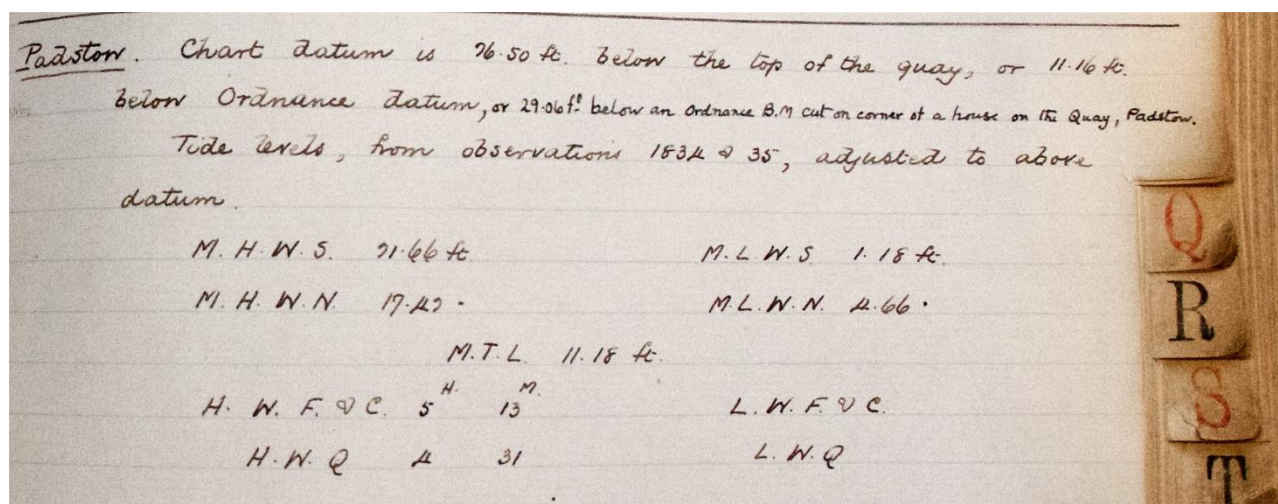 Padstow. Chart datum is 26.50 ft. below the top of the quay, or 11.16 ft.
below Ordnance datum, or 29.06 ft. below an Ordnance B.M cut on corner of a house on the Quay, Padstow.
Tide levels, from observations 1834 & 35, adjusted to above
datum.
M. H. W. S. 21.66 ft M. L. W. S 1.18 ft.
M. H. W. N. 17.42 " M. L. W. N. 4.66 "
M. T. L. 11.18 ft.
H. W. F. & C. 5 H. 13 M. L. W. F. & C.
H. W. Q 4 31 L. W. Q
Q
R
S
T